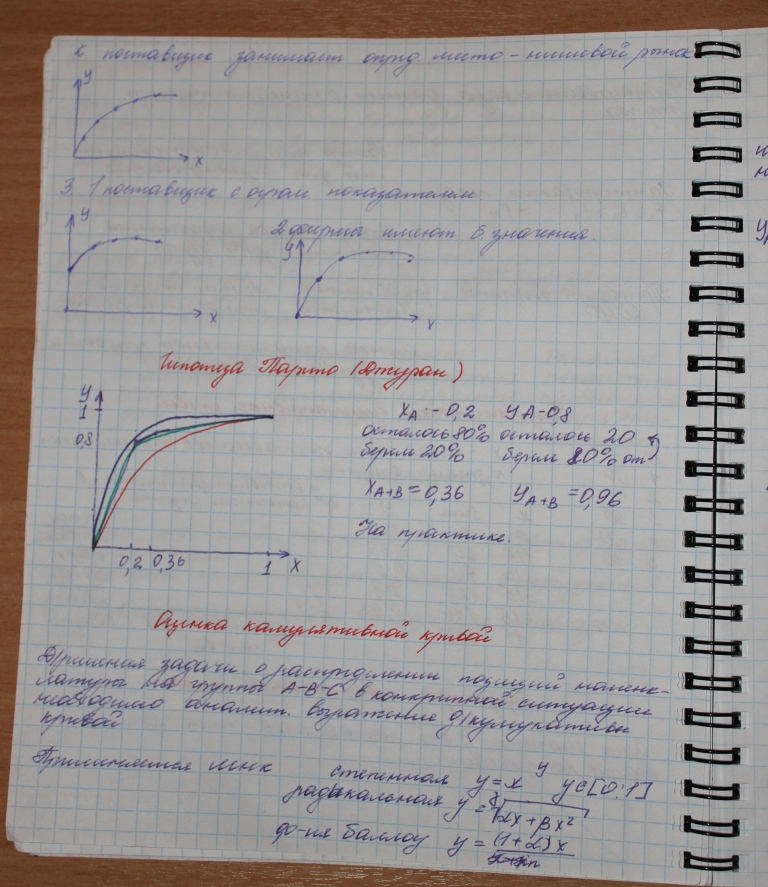 к поставщик занимает опред место – нишевой рынок
y
x
3 1 поставщик с огран показателем
y
x
2 фирмы имеют б. значения.
y
x
Гипотеза Парето (Джуран)
y
1
0,8
0,2 0,36 1 x
xA – 0,2 yA – 0,8
осталось 80% осталось 20
берем 20% берем 80% от
xA+B = 0,36 yA+B = 0,96
На практике.
Оценка камулятивной кривой
Д/решения задачи о распределении позиций номенк-
латуры на группы A-B-C в конкретной ситуации
необходимо аналит. выражение д/кумулятивн
кривой
Применяется
степенная y = x^y y∈[0;1]
радикальная y = √αx + βx²
ф-ия баллоу y = (1+α)x